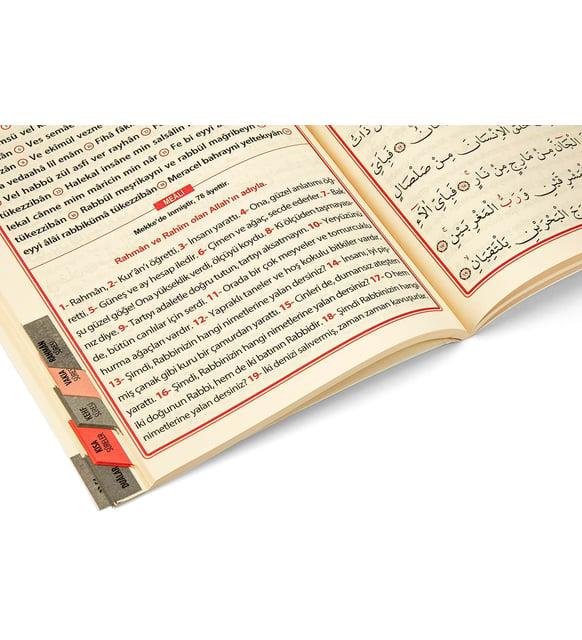 sü vel k
Ves semâe
Ve ekimül vezne
Fîhâ fâkih
ve vedaahâ lil enâm
Vel habbü zül asfi ver rayhân
Halekal insâne min salsâlin
lekal cânne min mâricin min nâr
Fe bi eyyi
tükezzibân Rabbül meşrikayni ve rabbül mağribeyn
eyyi âlâi rabbikümâ tükezzibân Meracel bahrayni yeltekıyân
MEALİ
Mekke'de inmiştir, 78 âyettir.
Rahmân ve Rahîm olan Allah'ın adıyla.
1- Rahmân, 2- Kur'ân'ı öğretti. 3- İnsanı yarattı. 4- Ona, güzel anlatımı öğ-
retti. 5- Güneş ve ay hesap iledir. 6- Çimen ve ağaç, secde ederler. 7- Bak
şu güzel göğe! Ona yükseklik verdi, ölçüyü koydu. 8- Ki ölçüden taşmayası-
nız diye. 9- Tartıyı adaletle doğru tutun, tartıyı aksatmayın. 10- Yeryüzünü
de, bütün canlılar için serdi. 11- Orada bir çok meyveler ve tomurcuklu
hurma ağaçları vardır. 12- Yapraklı taneler ve hoş kokulu bitkiler vardır.
13- Şimdi, Rabbinizin hangi nimetlerine yalan dersiniz? 14- İnsanı, iyi piş-
miş çanak gibi kuru bir çamurdan yarattı. 15- Cinleri de, dumansız ateşten
yarattı. 16- Şimdi, Rabbinizin hangi nimetlerine yalan dersiniz? 17- O hem
iki doğunun Rabbi, hem de iki batının Rabbidir. 18- Şimdi Rabbinizin hangi
nimetlerine yalan dersiniz? 19- İki denizi salıvermiş, zaman zaman kavuşurlar.
RAHMÂN
SÛRESİ
VAKIA
SÛRESİ
KEHF
SÛRESİ
KISA
SÛRELER
DUÂLAR
الْاِنْسَانَ مِنْ صَلْصَالٍ
مِنْ مَارِجٍ مِنْ نَارٍ فَبِاَيِّ اٰلَٓاءِ
وَرَبُّ الْمَغْرِبَيْنِ
الْبَحْرَيْنِ يَلْتَقِيَانِ